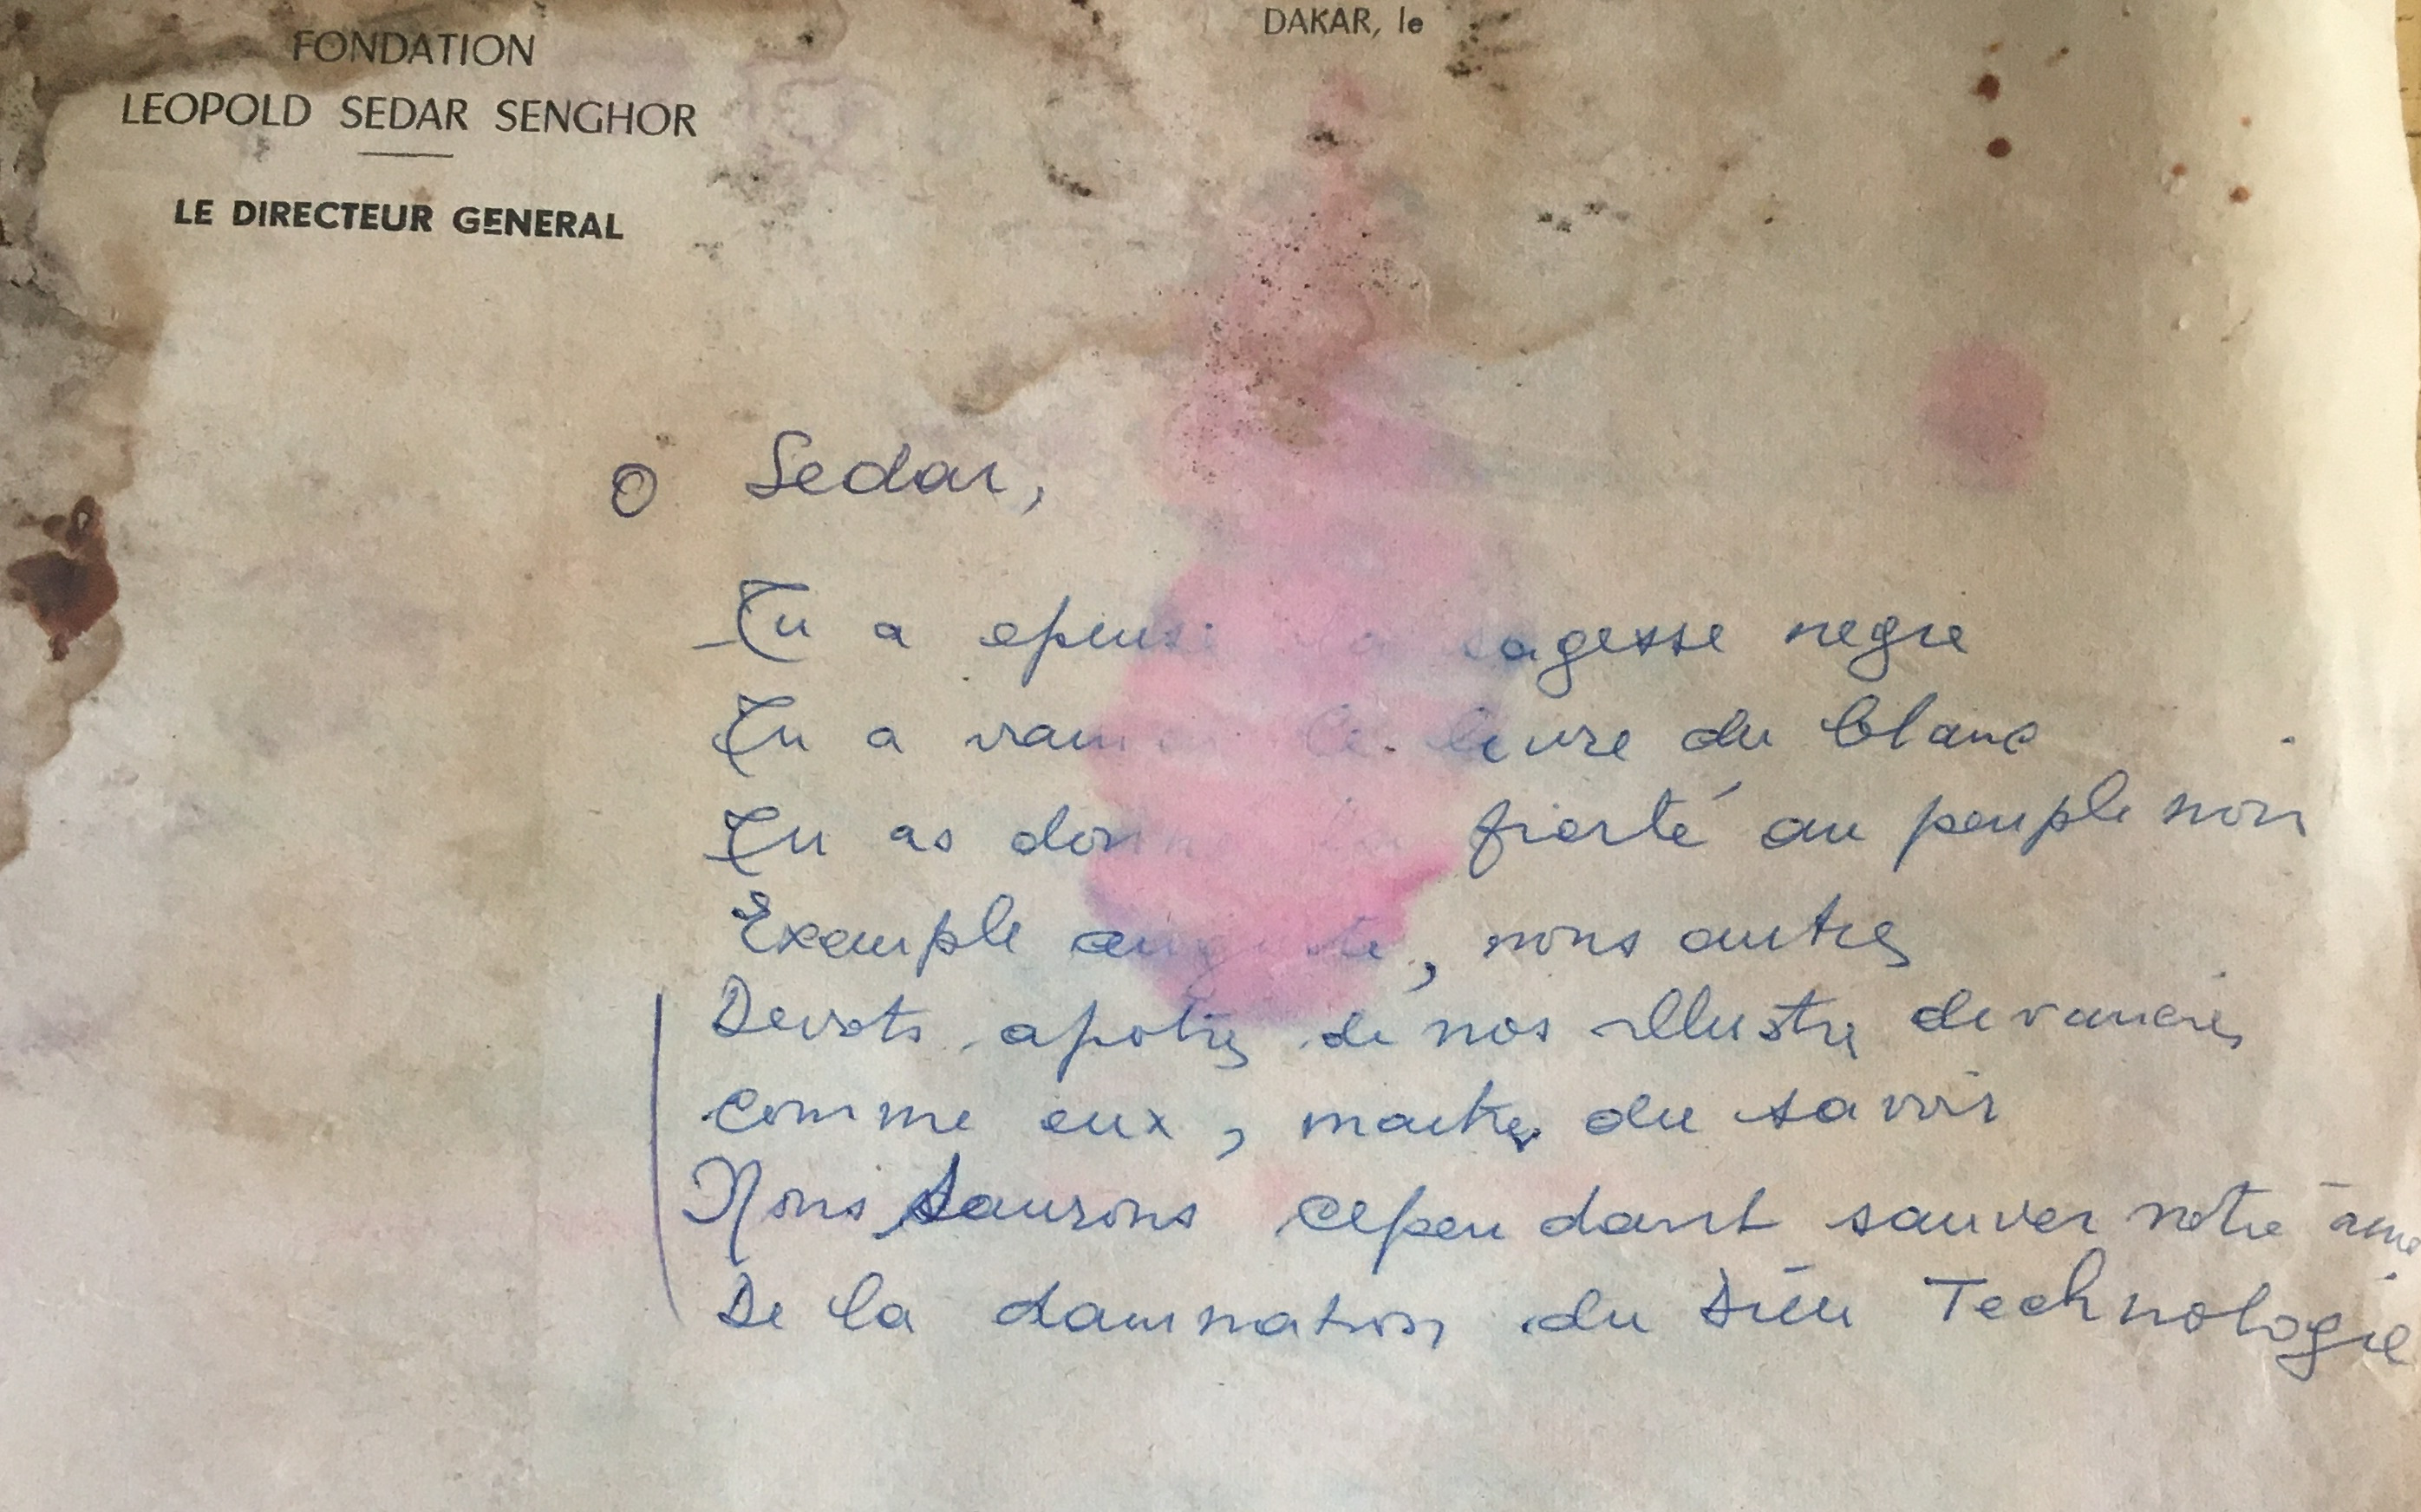 DAKAR, le
FONDATION
LEOPOLD SEDAR SENGHOR
LE DIRECTEUR GENERAL
O Sedar,
Tu a sagesse negre
Tu a le livre du blanc
Tu as fierté au peuple noir
Exemple auguste, nous autres
Devots apotres de nos illustre devanciers
comme eux, maitres du savoir
Nous saurons cependant sauver notre âme
De la damnation du Dieu Technologie